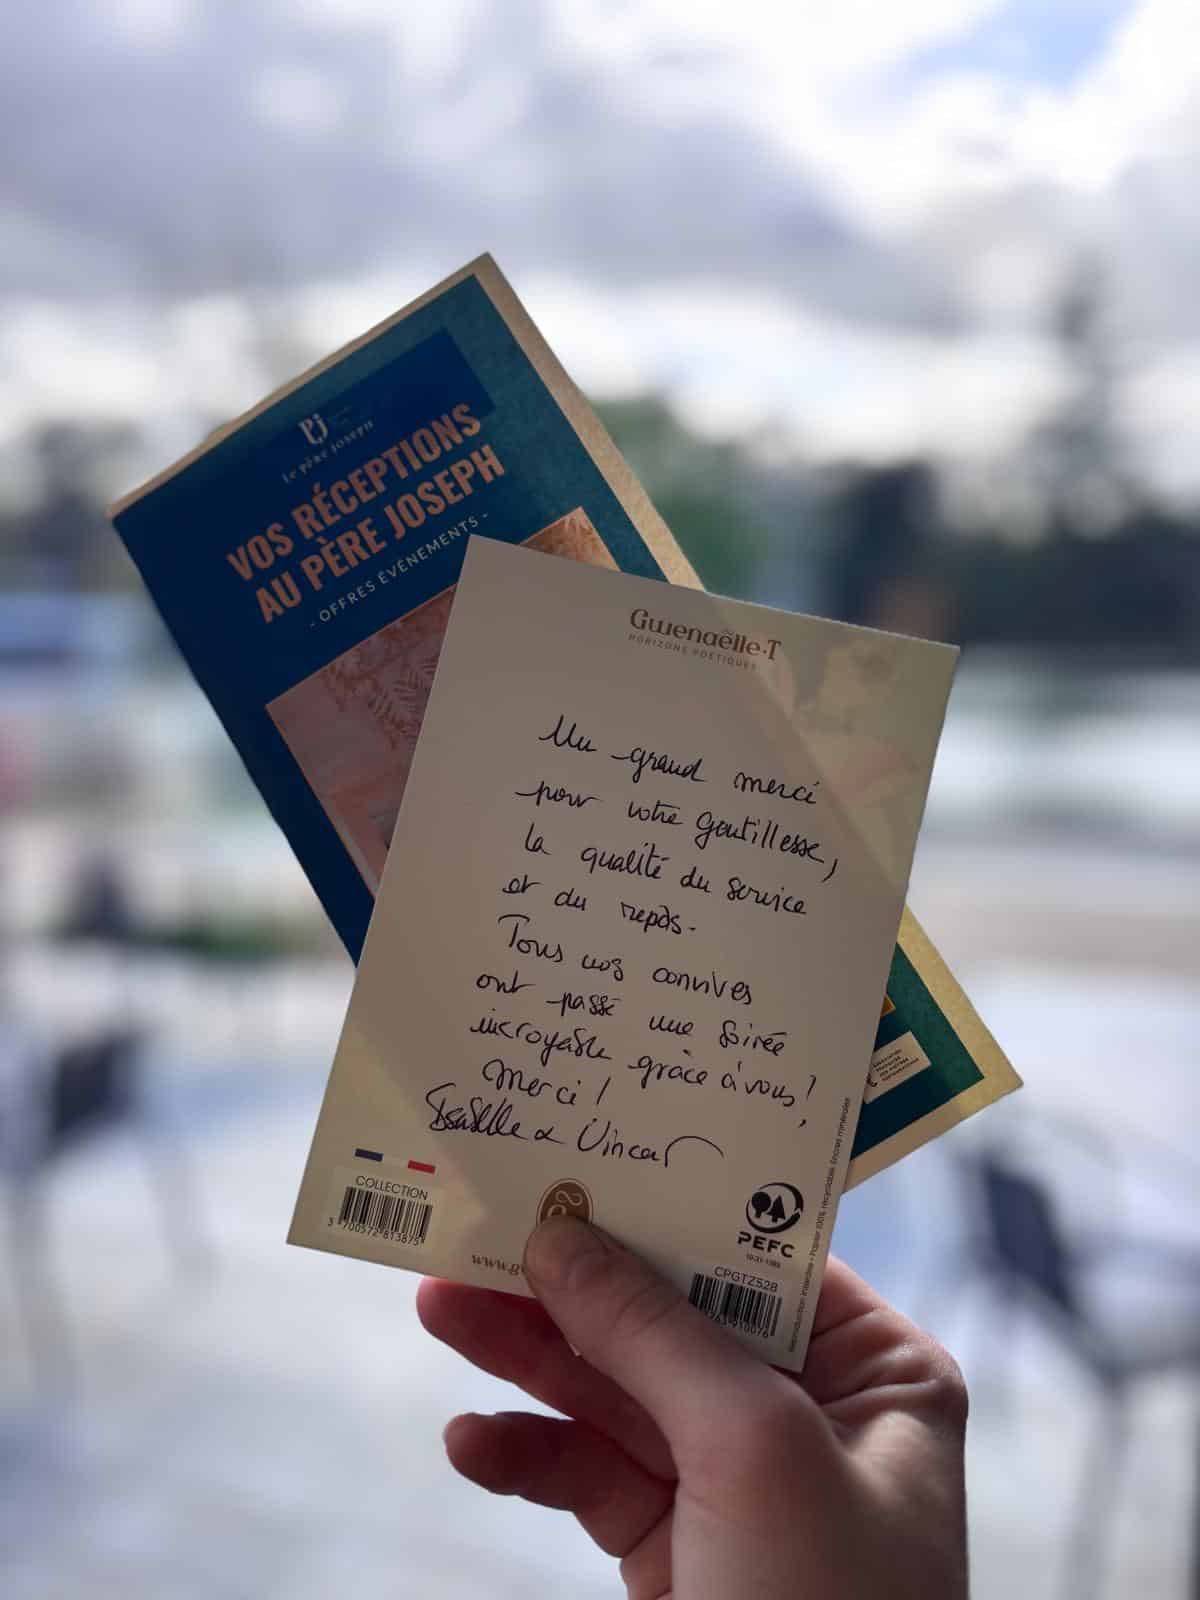 PJ
Le Père Joseph
VOS RÉCEPTIONS
AU PÈRE JOSEPH
- OFFRES ÉVÉNEMENTS -
Gwenaëlle·T
HORIZONS POÉTIQUES
Un grand merci
pour votre gentillesse,
la qualité du service
et du repas.
Tous nos convives
ont passé une soirée
incroyable grâce à vous !
Merci !
Isabelle & Vincent
COLLECTION
3 700572 813875
www.g
PEFC
10-31-1388
CPGTZ528
263 910076
Reproduction interdite • Papier 100% recyclable, Encres minérales